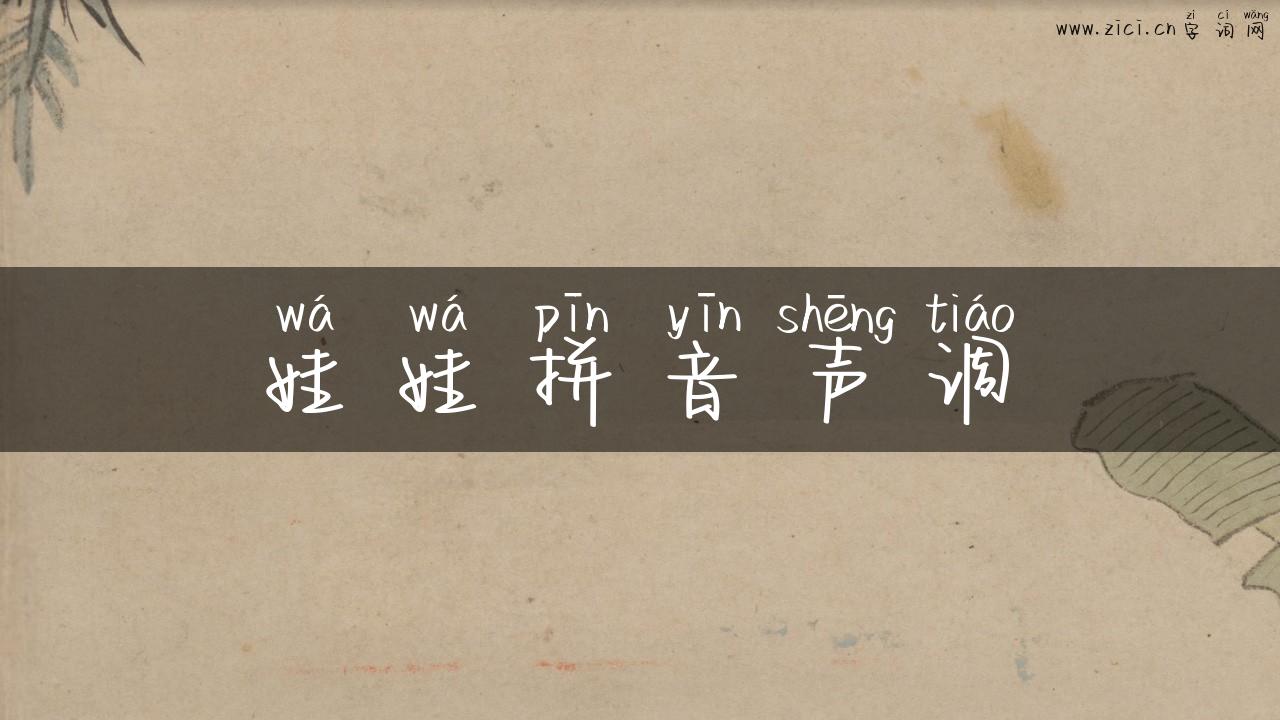 zì cí wǎng
www.zici.cn 字 词 网
wá wá pīn yīn shēng tiáo
娃 娃 拼 音 声 调